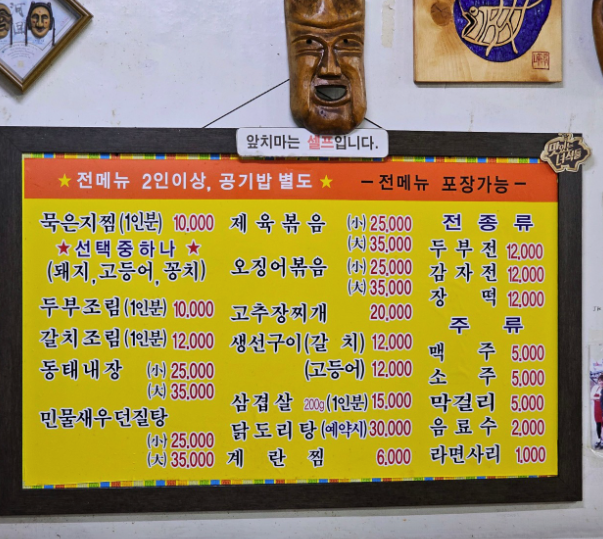 앞치마는 셀프입니다.
맛있는
녀석들
★전메뉴 2인이상, 공기밥 별도★ -전메뉴 포장가능-
묵은지찜(1인분) 10,000
★선택중하나★
(돼지,고등어,꽁치)
두부조림(1인분) 10,000
갈치조림(1인분) 12,000
동태내장 (小) 25,000
(大) 35,000
민물새우던질탕
(小) 25,000
(大) 35,000
제육볶음 (小) 25,000
(大) 35,000
오징어볶음 (小) 25,000
(大) 35,000
고추장찌개 20,000
생선구이(갈 치) 12,000
(고등어) 12,000
삼겹살 200g(1인분) 15,000
닭도리탕(예약시) 30,000
계란찜 6,000
전종류
두부전 12,000
감자전 12,000
장떡 12,000
주류
맥주 5,000
소주 5,000
막걸리 5,000
음료수 2,000
라면사리 1,000